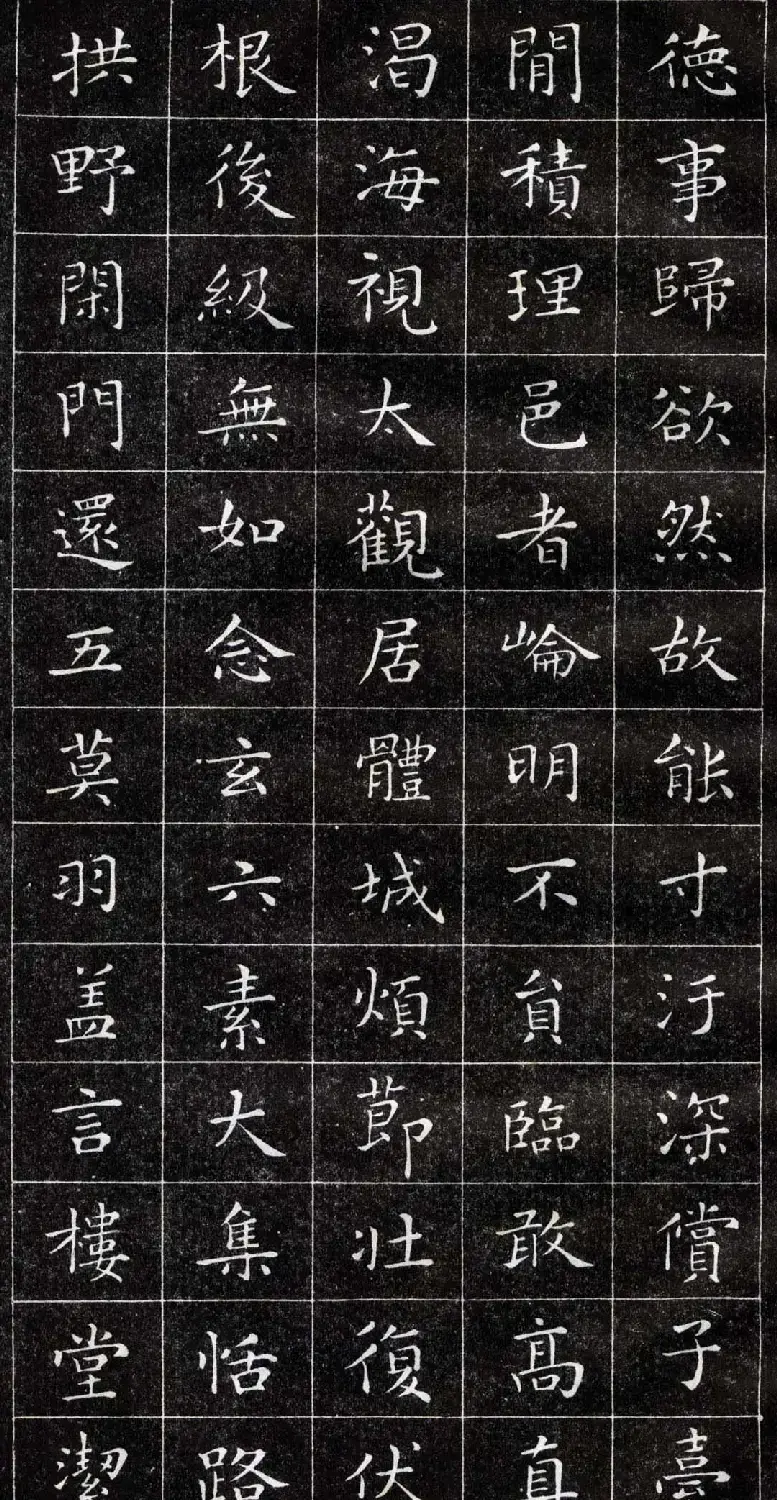 徳事歸欲然故能寸汙深償子臺
閒積理邑者崘明不貟臨敢髙真
渴海視太觀居體城煩莭壯復伏
根後級無如念玄六素大集恬路
拱野閑門還五莫羽盖言樓堂潔